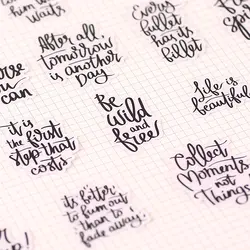 him to
waits
After all,
tomorrow
is another
Day
Every
bullet
has its
billet
you
can
Be
wild
and
free
Life is
beautiful
it is
the first
step that
costs
Collect
Moments
not
Things
its better
to burn out
than to
fade away.